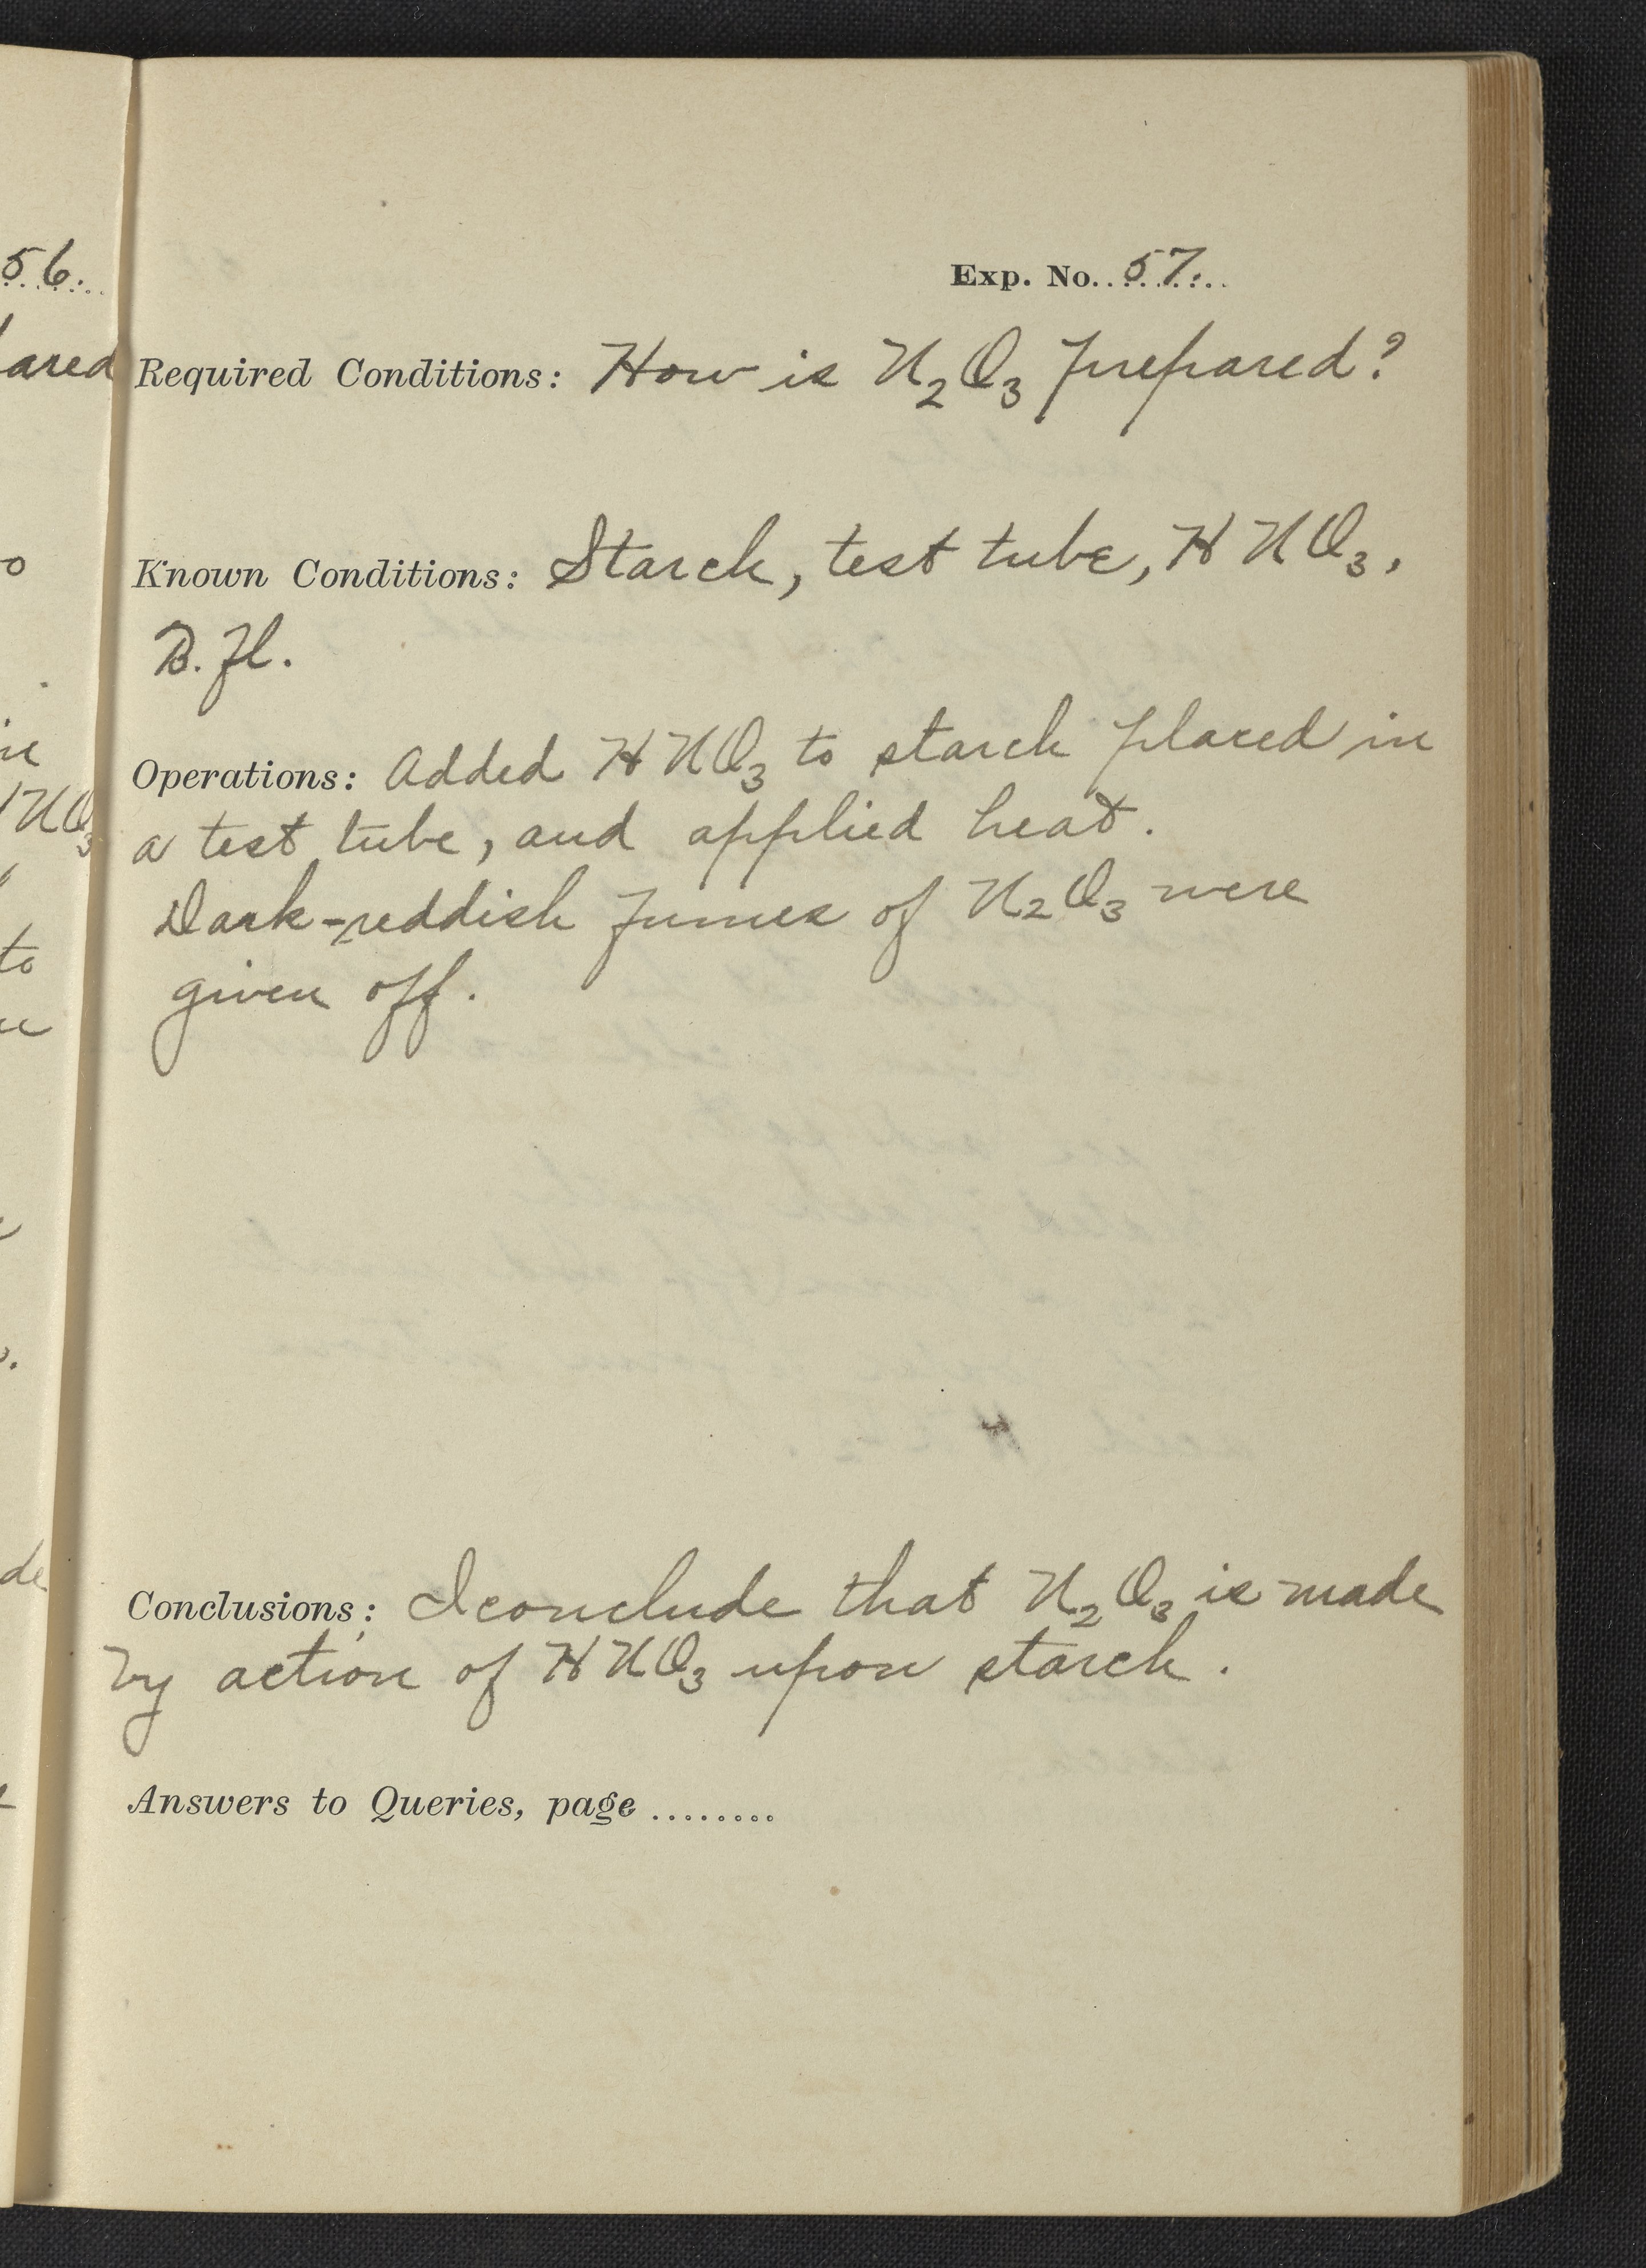 56.
ared
Exp. No. 57.
Required Conditions: How is N₂O₃ prepared?
Known Conditions: Starch, test tube, HNO₃,
B. Fl.
Operations: Added HNO₃ to starch placed in
a test tube, and applied heat.
Dark-reddish fumes of N₂O₃ were
given off.
NO₃
to
de
Conclusions: I conclude that N₂O₃ is made
by action of HNO₃ upon starch.
Answers to Queries, page ........